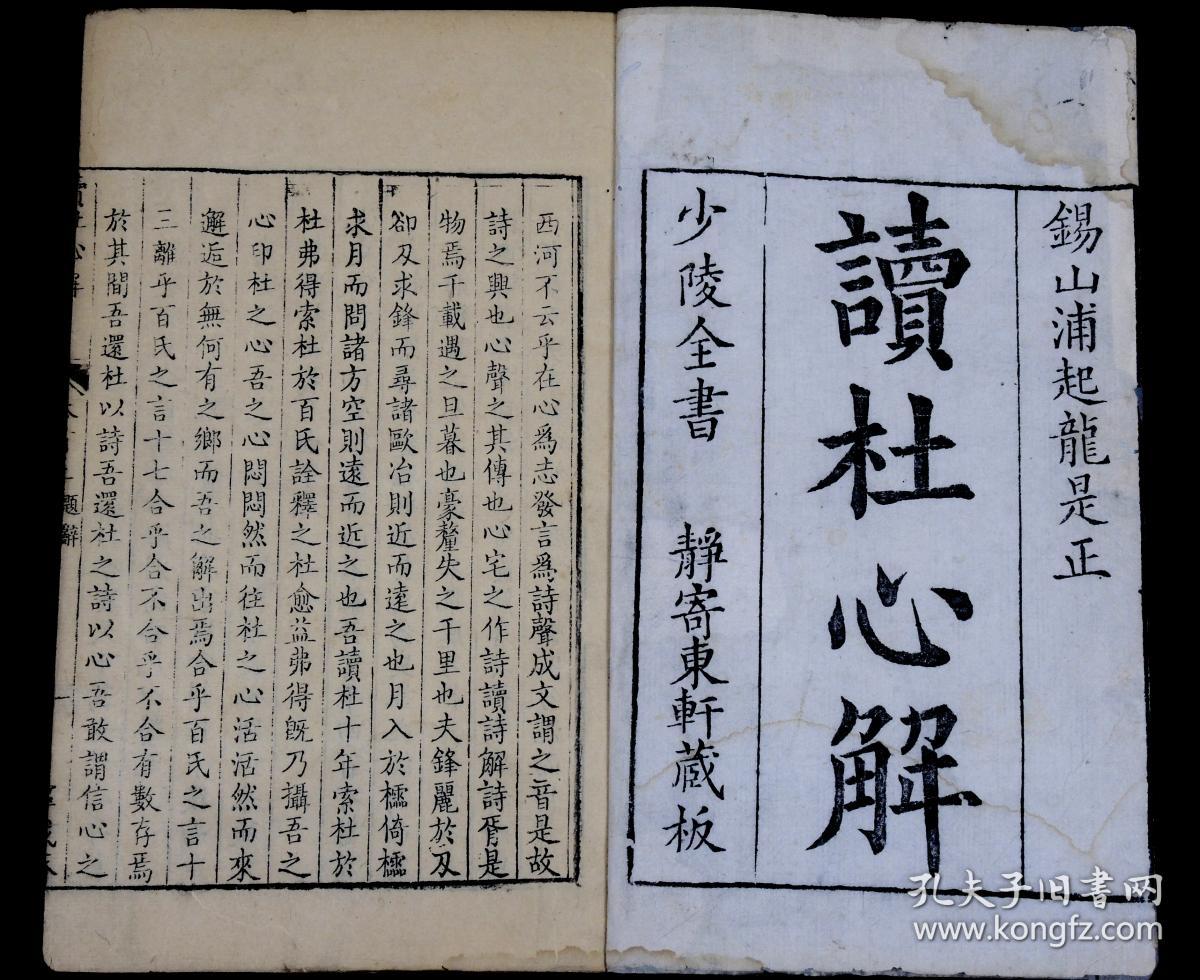 錫山浦起龍是正
讀杜心解
少陵全書 靜寄東軒藏板
西河不云乎在心爲志發言爲詩聲成文謂之音是故
詩之興也心聲之其傳也心宅之作詩讀詩解詩胥是
物焉千載遇之旦暮也豪釐失之千里也夫鋒麗於刄
卻刄求鋒而尋諸歐冶則近而遠之也月入於櫺倚櫺
求月而問諸方空則遠而近之也吾讀杜十年索杜於
杜弗得索杜於百氏詮釋之杜愈益弗得旣乃攝吾之
心印杜之心吾之心悶悶然而往杜之心活活然而來
邂逅於無何有之鄉而吾之解出焉合乎百氏之言十
三離乎百氏之言十七合乎合不合乎不合有數存焉
於其間吾還杜以詩吾還杜之詩以心吾敢謂信心之
讀杜心解
題辭
一
孔夫子旧书网
www.kongfz.com